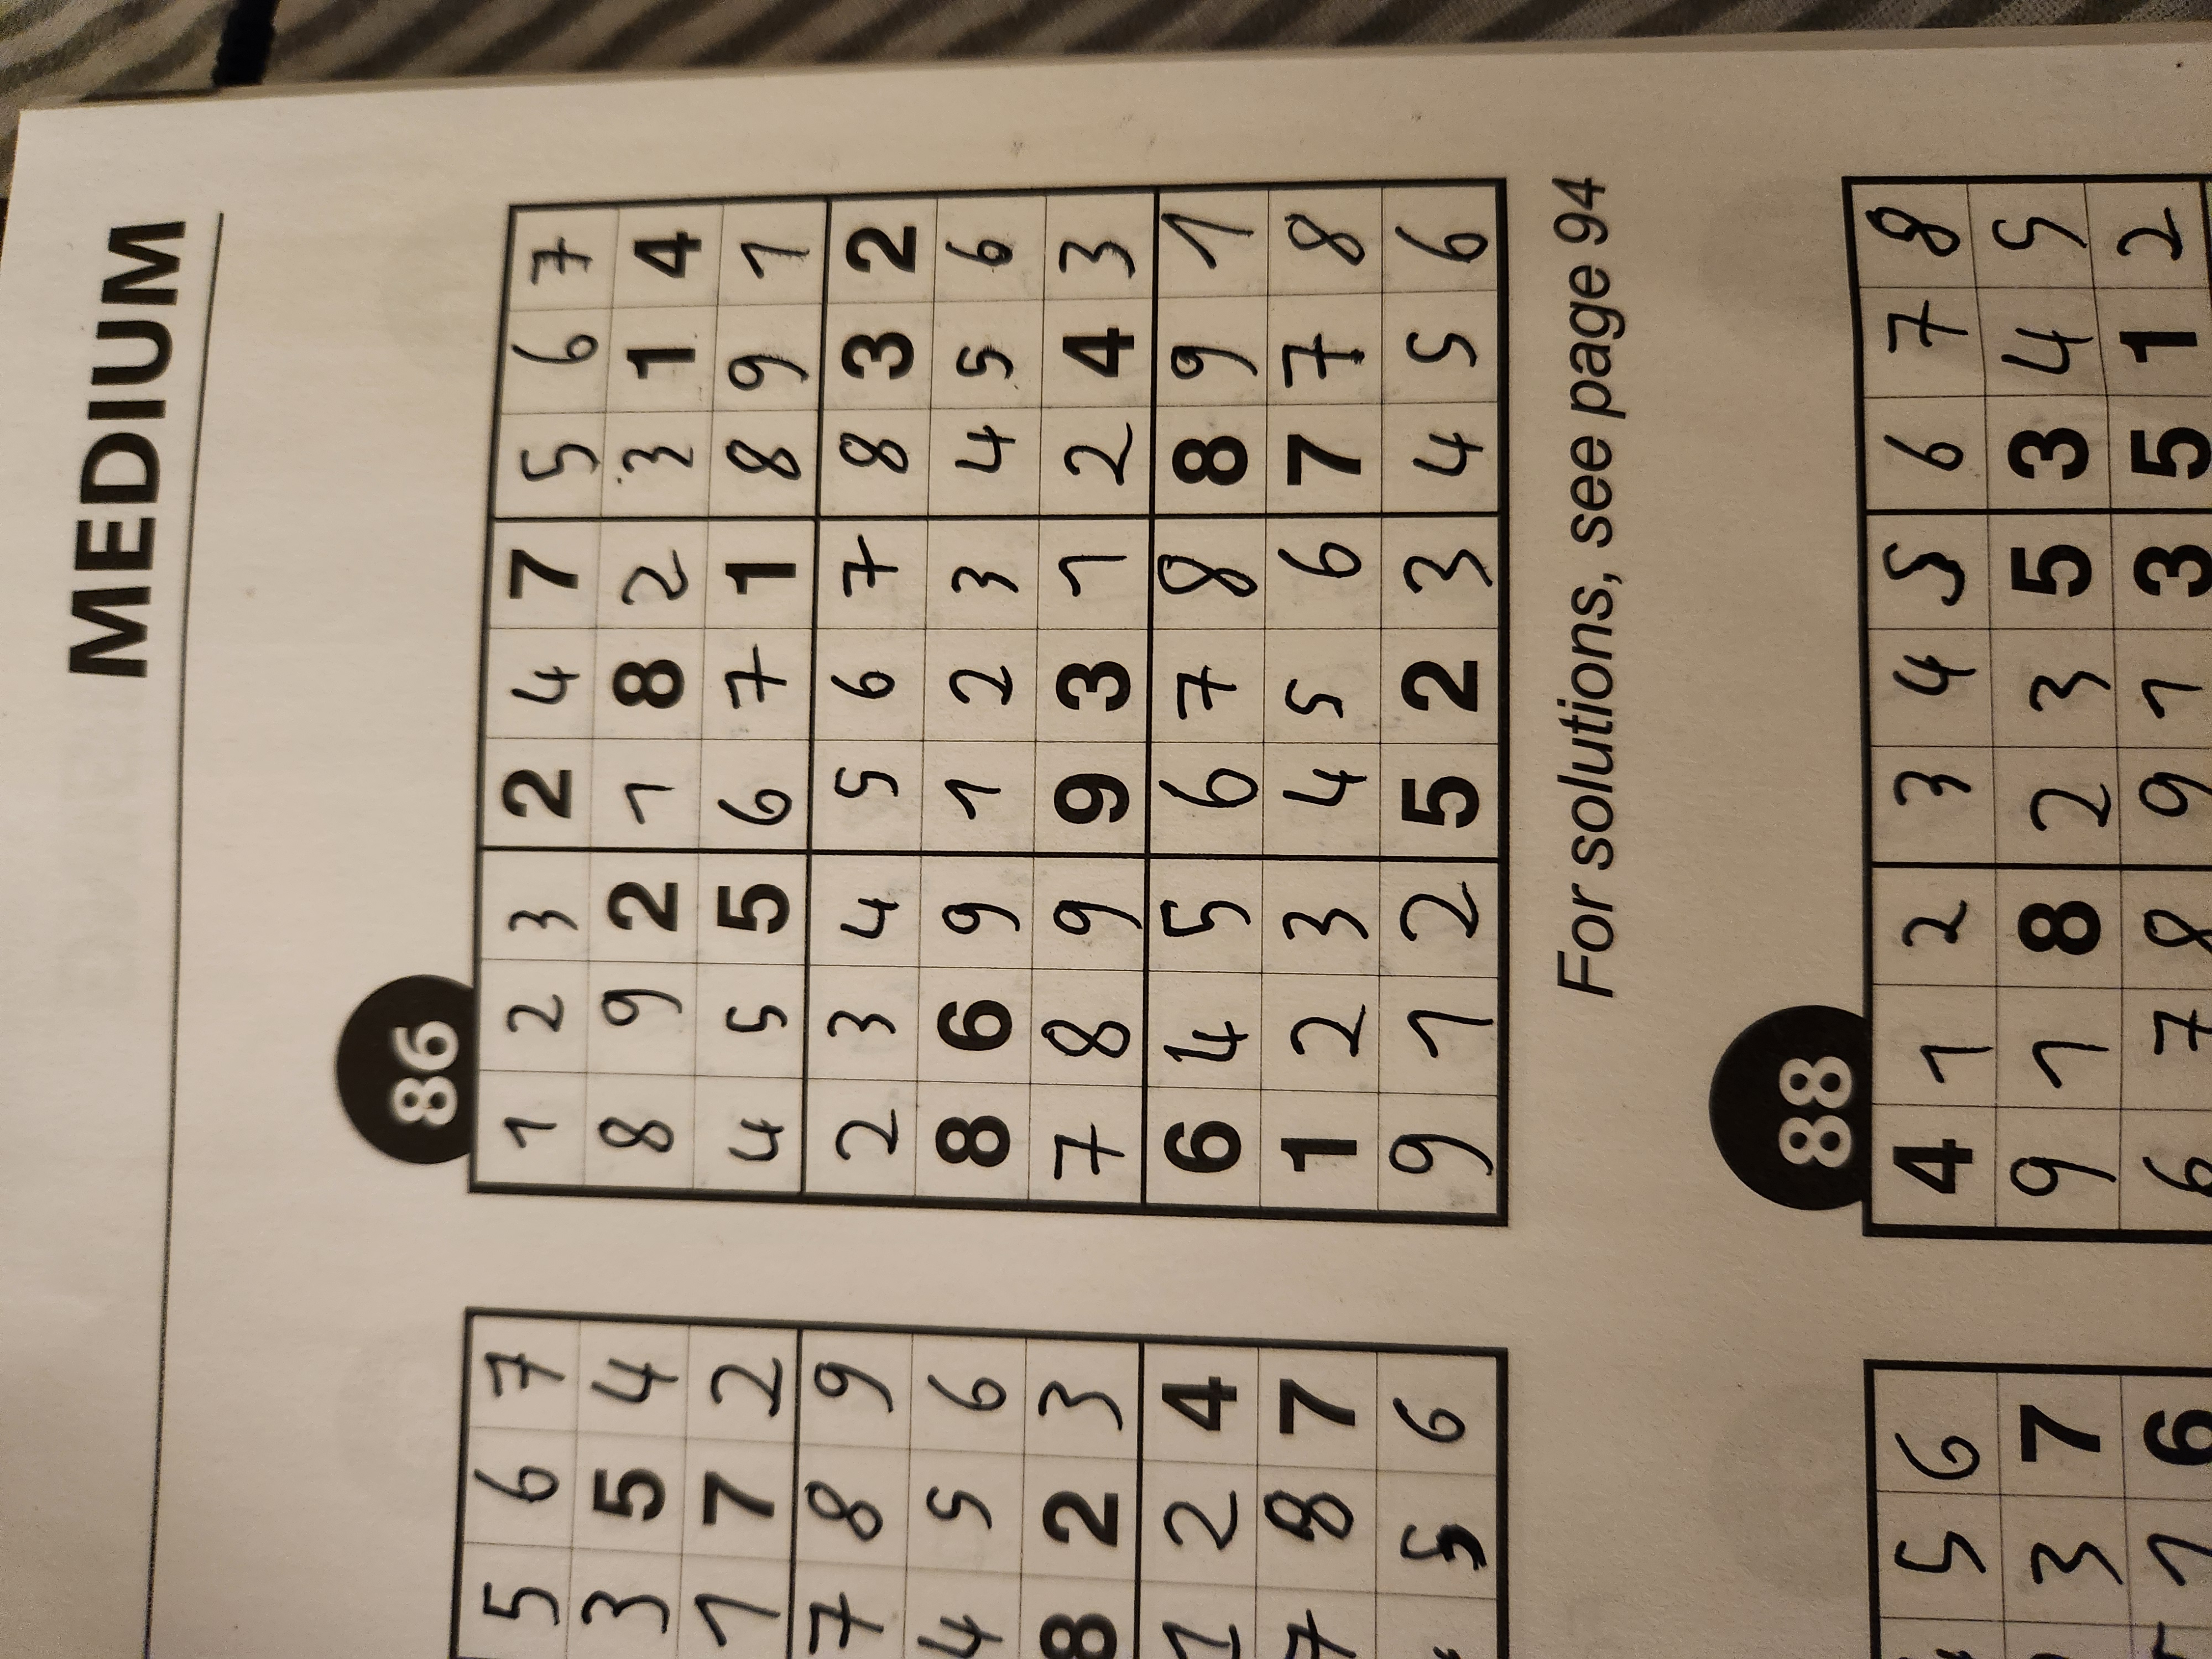 MEDIUM
86
5 6 7
3 5 4
1 7 2
7 8 9
4 5 6
8 2 3
1 2 4
7 8 7
5 6
1 2 3 2 4 7 5 6 7
8 9 2 1 8 2 3 1 4
4 5 5 6 7 1 8 9 1
2 3 4 5 6 7 8 3 2
8 6 9 1 2 3 4 5 6
7 8 9 9 3 1 2 4 3
6 4 5 6 7 8 8 9 1
1 2 3 4 5 6 7 7 8
9 1 2 5 2 3 4 5 6
For solutions, see page 94
88
5 6
3 7
1 6
4 1 2 3 4 5 6 7 8
9 1 8 2 3 5 3 4 5
6 7 8 9 1 3 5 1 2